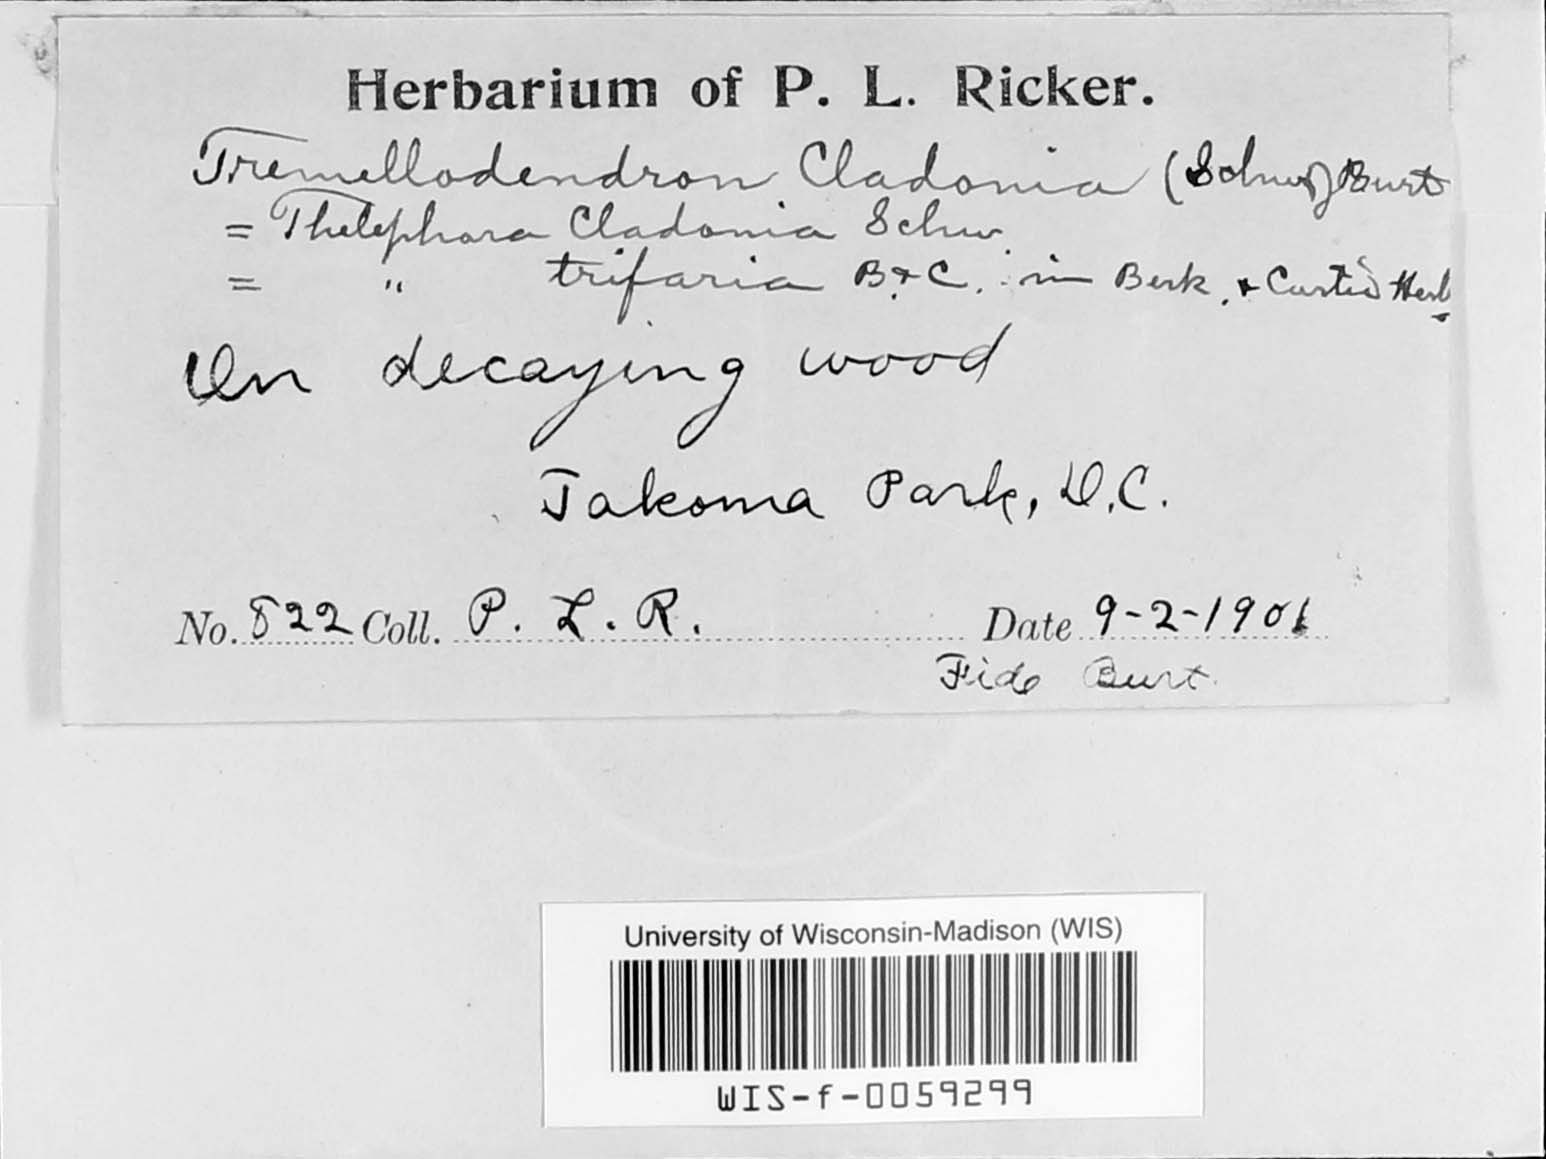 Herbarium of P. L. Ricker.
Tremellodendron Cladonia (Schw) Burt
= Thelephora Cladonia Schw.
= " trifaria B. & C. in Berk. & Curtis Herb
On decaying wood
Takoma Park, D.C.
No. 822 Coll. P. L. R. Date 9-2-1901
Fide Burt.
University of Wisconsin-Madison (WIS)
WIS-f-0059299